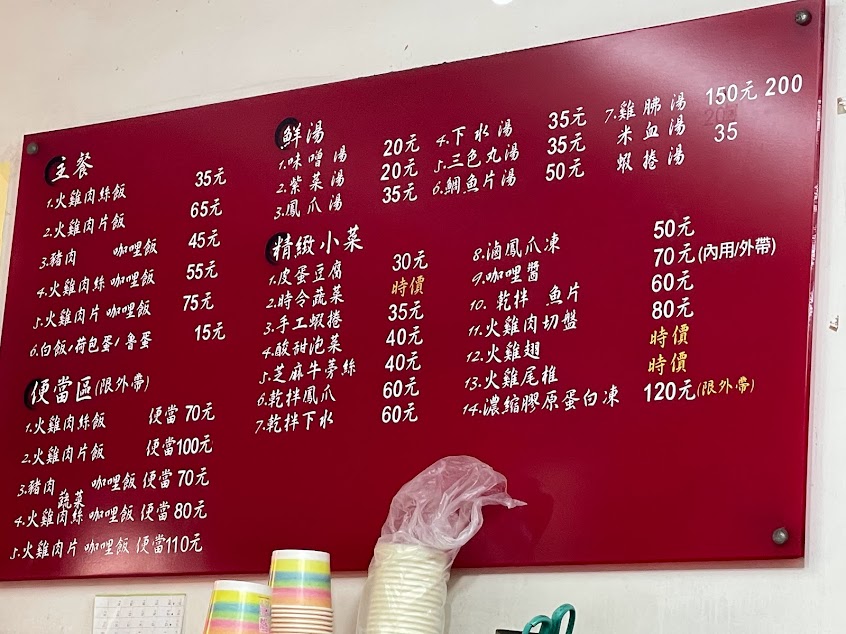 主餐
1.火雞肉絲飯 35元
2.火雞肉片飯 65元
3.豬肉 咖哩飯 45元
4.火雞肉絲咖哩飯 55元
5.火雞肉片咖哩飯 75元
6.白飯/荷包蛋/魯蛋 15元
便當區(限外帶)
1.火雞肉絲飯 便當 70元
2.火雞肉片飯 便當100元
3.豬肉 咖哩飯 便當 70元
蔬菜
4.火雞肉絲 咖哩飯 便當 80元
5.火雞肉片 咖哩飯 便當110元
鮮湯
1.味噌湯 20元
2.紫菜湯 20元
3.鳳爪湯 35元
4.下水湯 35元
5.三色丸湯 35元
6.鯛魚片湯 50元
7.雞胇湯 150元 200
米血湯 35
蝦捲湯
精緻小菜
1.皮蛋豆腐 30元
2.時令蔬菜 時價
3.手工蝦捲 35元
4.酸甜泡菜 40元
5.芝麻牛蒡絲 40元
6.乾拌鳳爪 60元
7.乾拌下水 60元
8.滷鳳爪凍 50元
9.咖哩醬 70元(內用/外帶)
10.乾拌 魚片 60元
11.火雞肉切盤 80元
12.火雞翅 時價
13.火雞尾椎 時價
14.濃縮膠原蛋白凍 120元(限外帶)